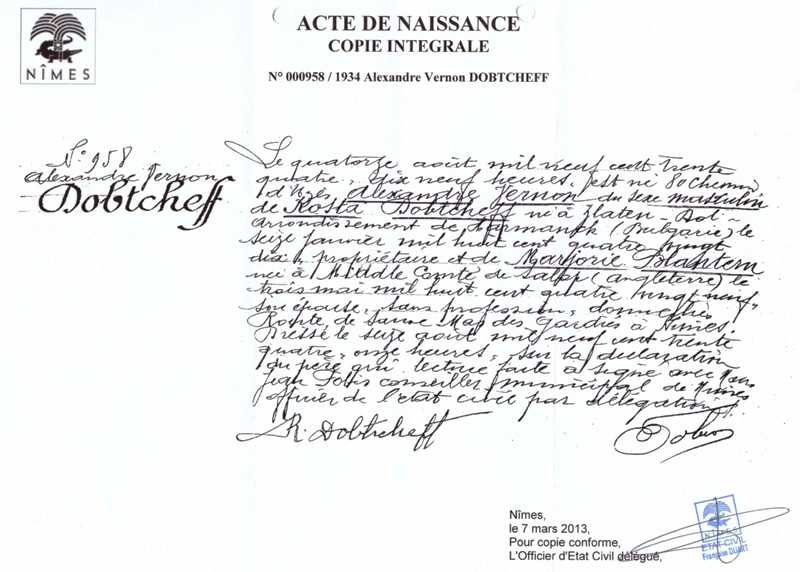 NÎMES
ACTE DE NAISSANCE
COPIE INTEGRALE
N° 000958 / 1934 Alexandre Vernon DOBTCHEFF
N° 958
Alexandre Vernon
Dobtcheff
Le quatorze août mil neuf cent trente
quatre, dix neuf heures, est né 80 chemin
d'Uzès Alexandre Vernon du sexe masculin
de Kosta Dobtcheff né à Zlaten-Dol-
arrondissement de Harmanck (Bulgarie) le
seize janvier mil huit cent quatre vingt
dix, propriétaire et de Marjorie
née à Middle Comté de (angleterre) le
trois mai mil huit cent quatre vingt neuf
son épouse, sans profession, domiciliés
Route de Sauve Mas des Gardies à Nîmes.
Dressé le seize août mil neuf cent trente
quatre, onze heures, sur la déclaration
du père qui lecture faite a signé avec Nous
Jean conseiller municipal de Nîmes
officier de l'état civil par délégation.
K. Dobtcheff
Nîmes,
le 7 mars 2013,
Pour copie conforme,
L'Officier d'Etat Civil délégué,
NÎMES
ETAT-CIVIL
Françoise